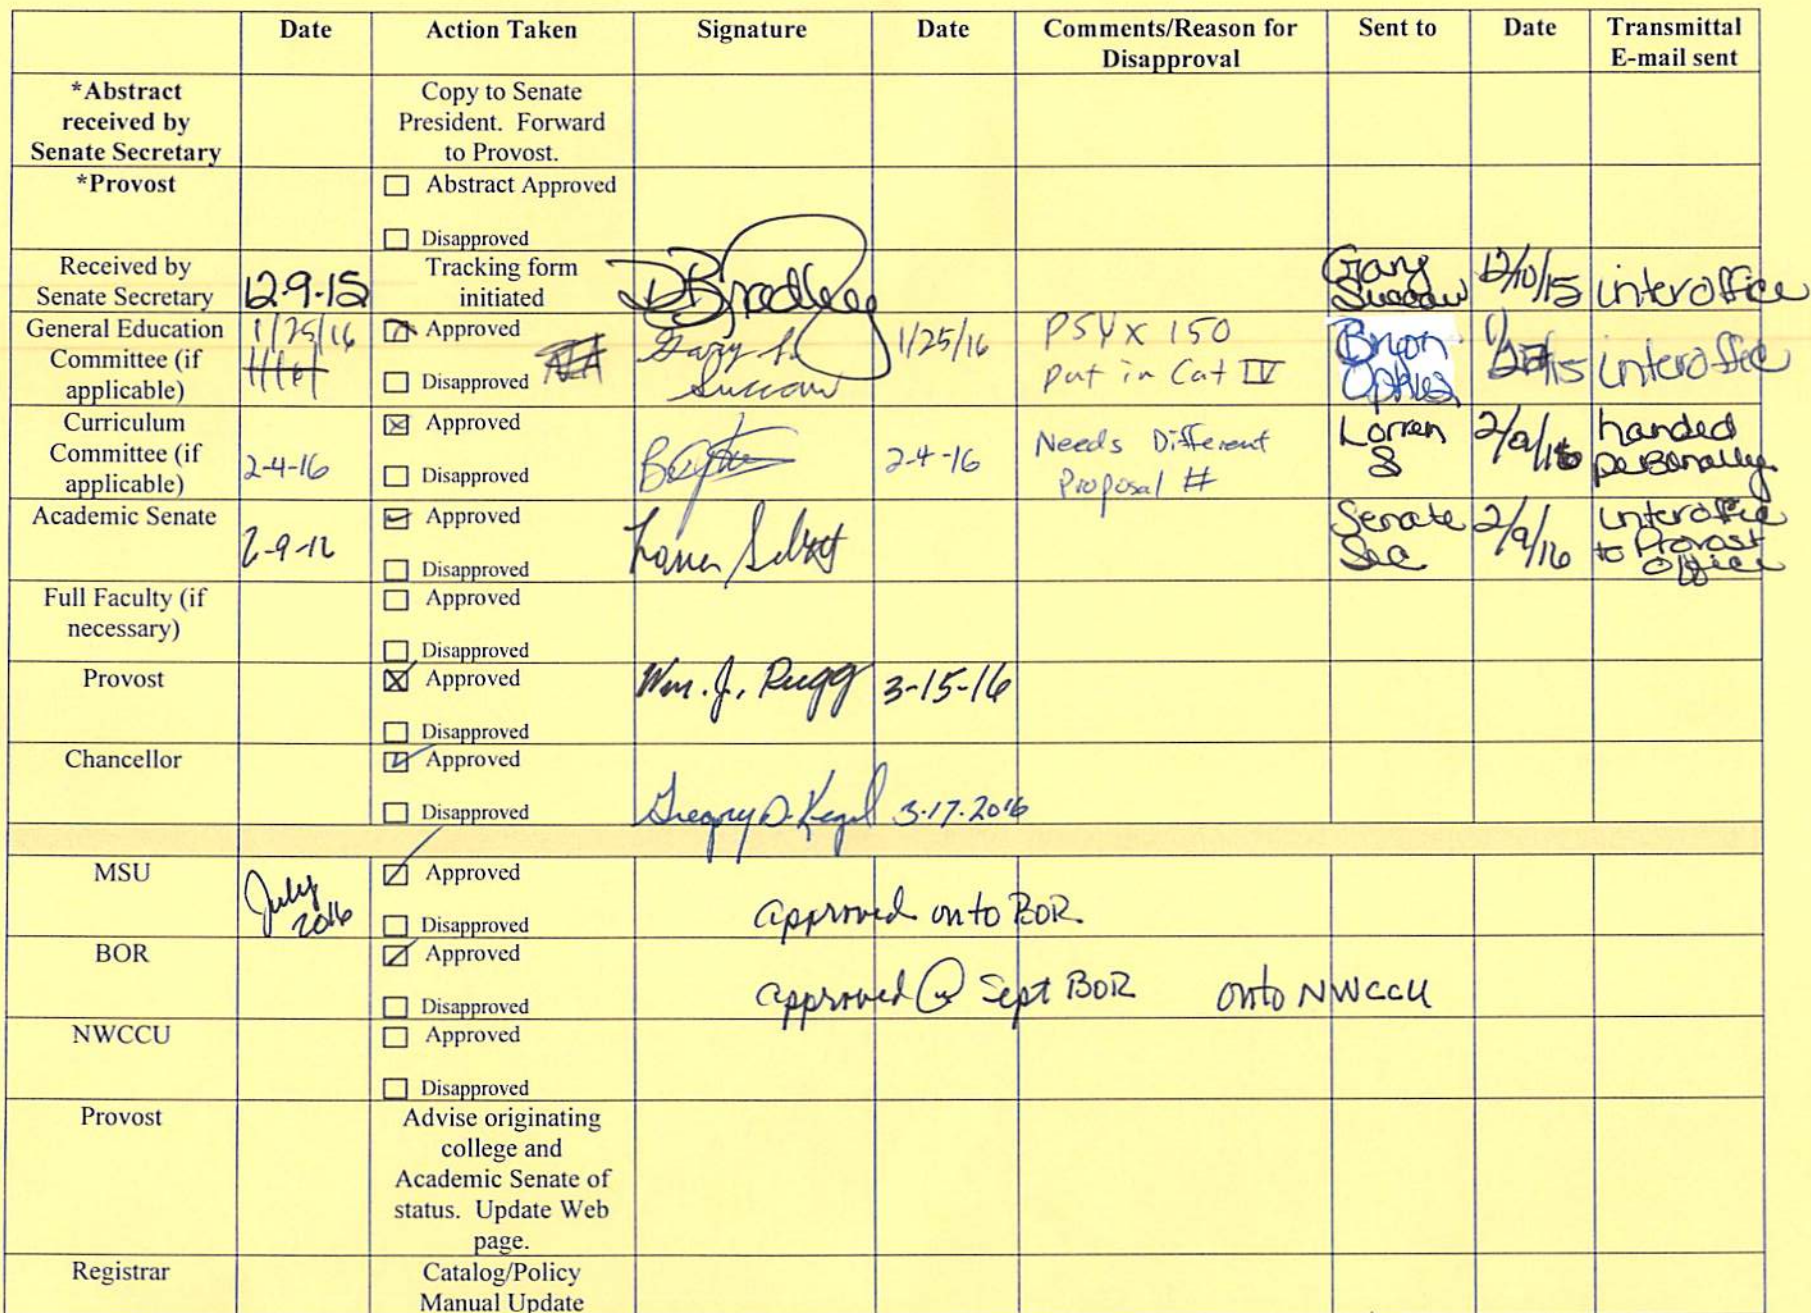 Date Action Taken Signature Date Comments/Reason for Sent to Date Transmittal
Disapproval E-mail sent
*Abstract
received by
Senate Secretary
Copy to Senate
President. Forward
to Provost.
*Provost
Abstract Approved
Disapproved
Received by
Senate Secretary
12-9-15
Tracking form
initiated
DBradley
Gary
Succaw
12/10/15
interoffice
General Education
Committee (if
applicable)
1/25/16
Approved
Disapproved
Gary L.
Succaw
1/25/16
PSYX 150
put in Cat IV
interoffice
Curriculum
Committee (if
applicable)
2-4-16
Approved
Disapproved
2-4-16
Needs Different
Proposal #
Lorren
S
handed
personally
Academic Senate
2-9-16
Approved
Disapproved
Senate
Sec
2/9/16
interoffice
to Provost
Office
Full Faculty (if
necessary)
Approved
Disapproved
Provost
Approved
Disapproved
Wm. J. Rugg
3-15-16
Chancellor
Approved
Disapproved
Gregory D. Kegel
3-17-2016
MSU
July
2016
Approved
Disapproved
approved onto BOR
BOR
Approved
Disapproved
approved @ Sept BOR onto NWCCU
NWCCU
Approved
Disapproved
Provost
Advise originating
college and
Academic Senate of
status. Update Web
page.
Registrar
Catalog/Policy
Manual Update